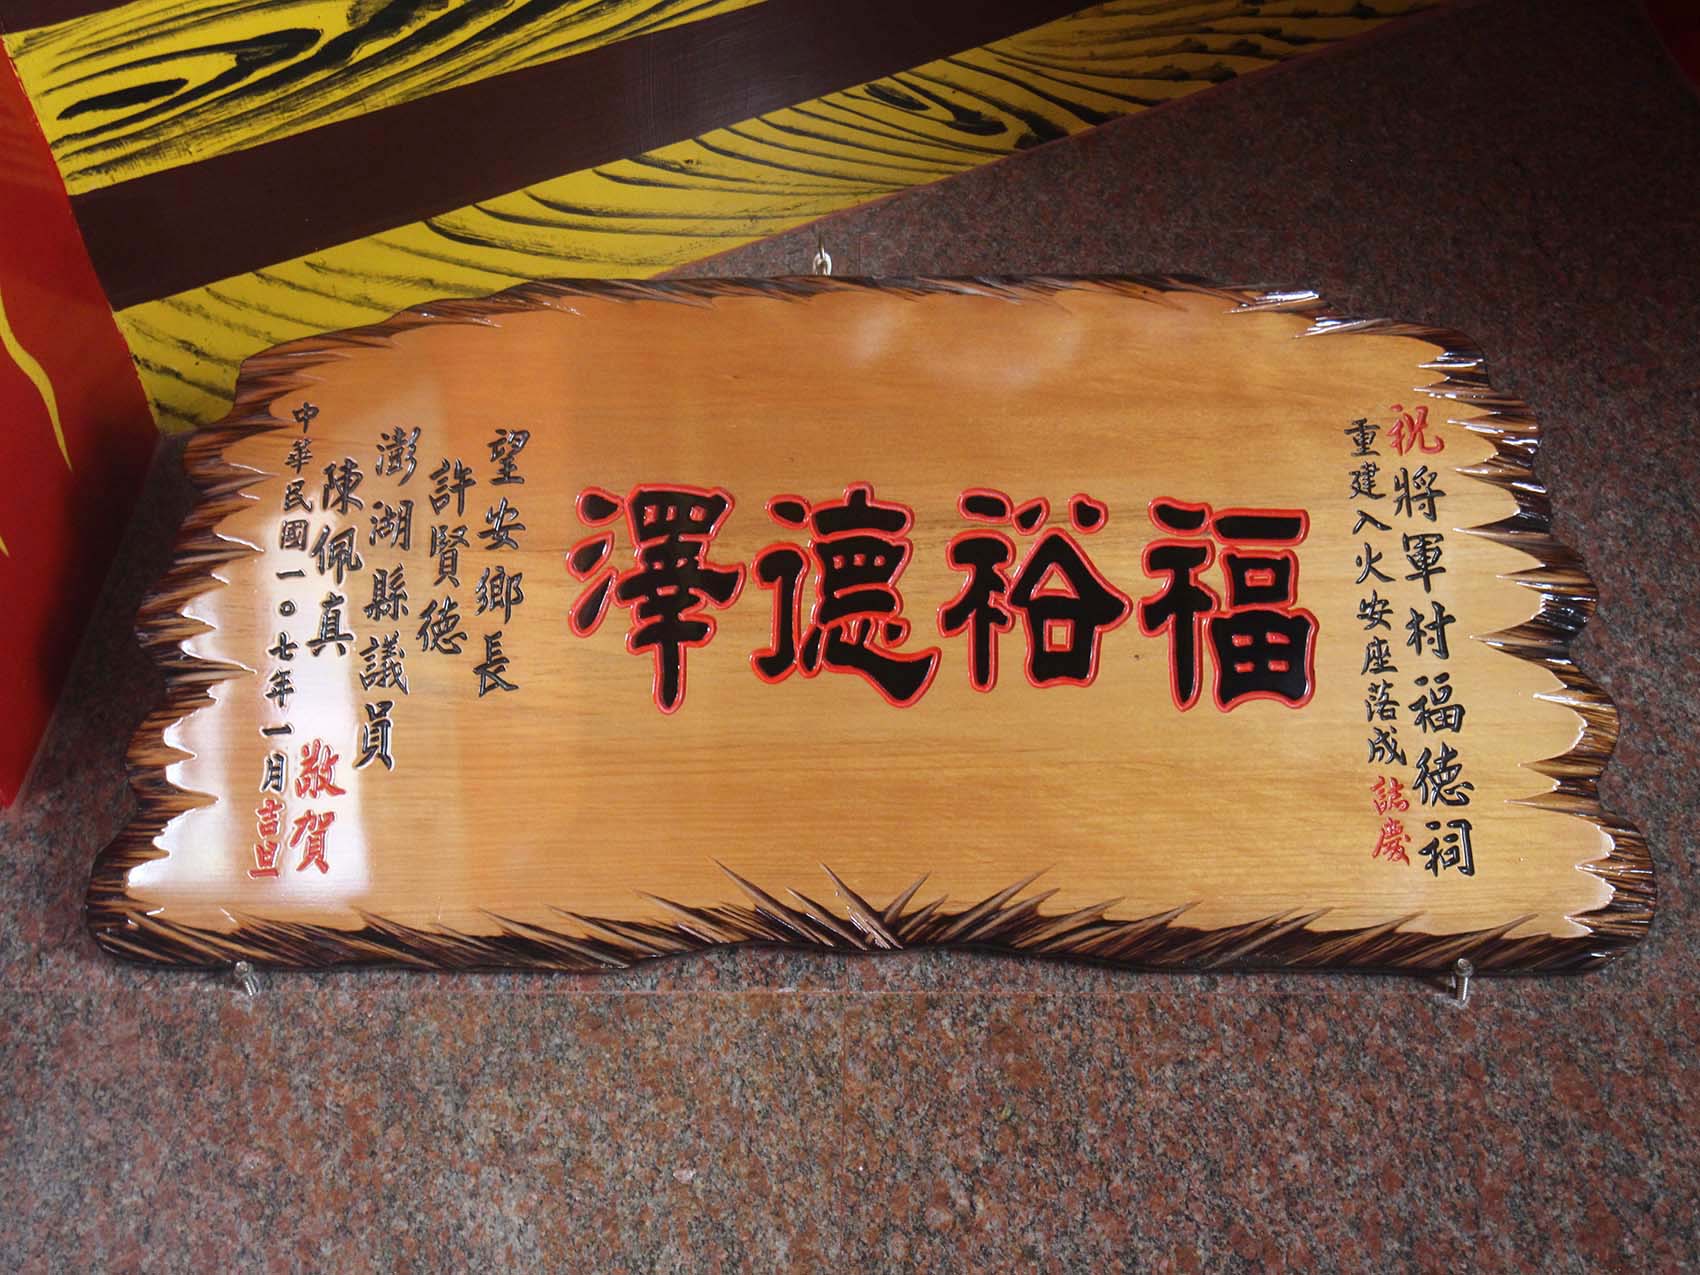 祝將軍村福德祠
重建入火安座落成誌慶
福裕德澤
望安鄉長
許賢德
澎湖縣議員
陳佩真
敬賀
中華民國一〇七年一月吉旦